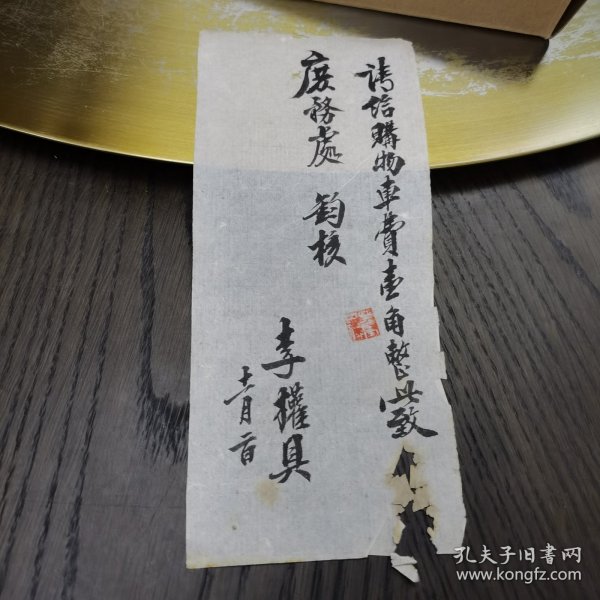 請給購物車費壹角整此致
庶務處 鈞核
李權具
十一月二日
孔夫子旧书网
www.kongfz.com